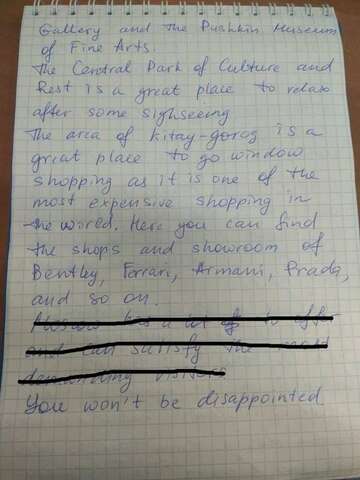 Gallery and the Pushkin Museum
of Fine Arts.
The Central Park of Culture and
Rest is a great place to relax
after some sighseeing
The area of Kitay-gorog is a
great place to go window
shopping as it is one of the
most expensive shopping in
the world. Here you can find
the shops and showroom of
Bentley, Ferrari, Armani, Prada,
and so on.
Moscow has a lot to offer
and can satisfy the most
demanding visitors
You won't be disappointed